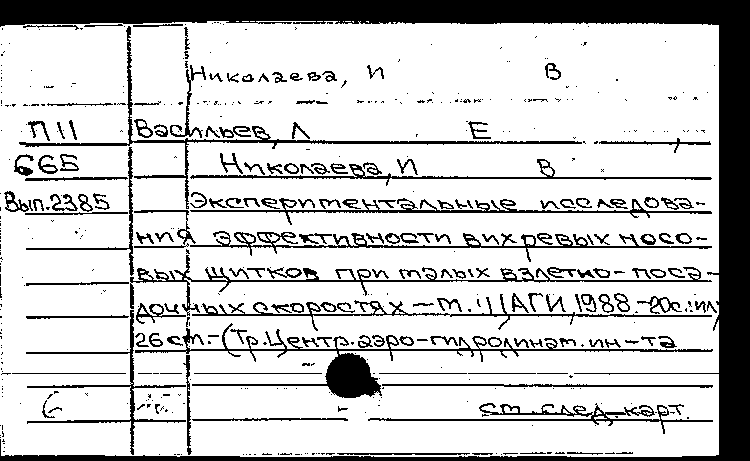 Николаева, И В
П11 Васильев, Л Е,
665 Николаева, И В
Вып.2385 Экспериментальные исследова-
ния эффективности вихревых носо-
вых щитков при малых взлетно-поса-
дочных скоростях – М.: ЦАГИ, 1988.-20с.:ил,
26 см.-(Тр.Центр.аэро-гидродинам.ин-та
см.след.карт.